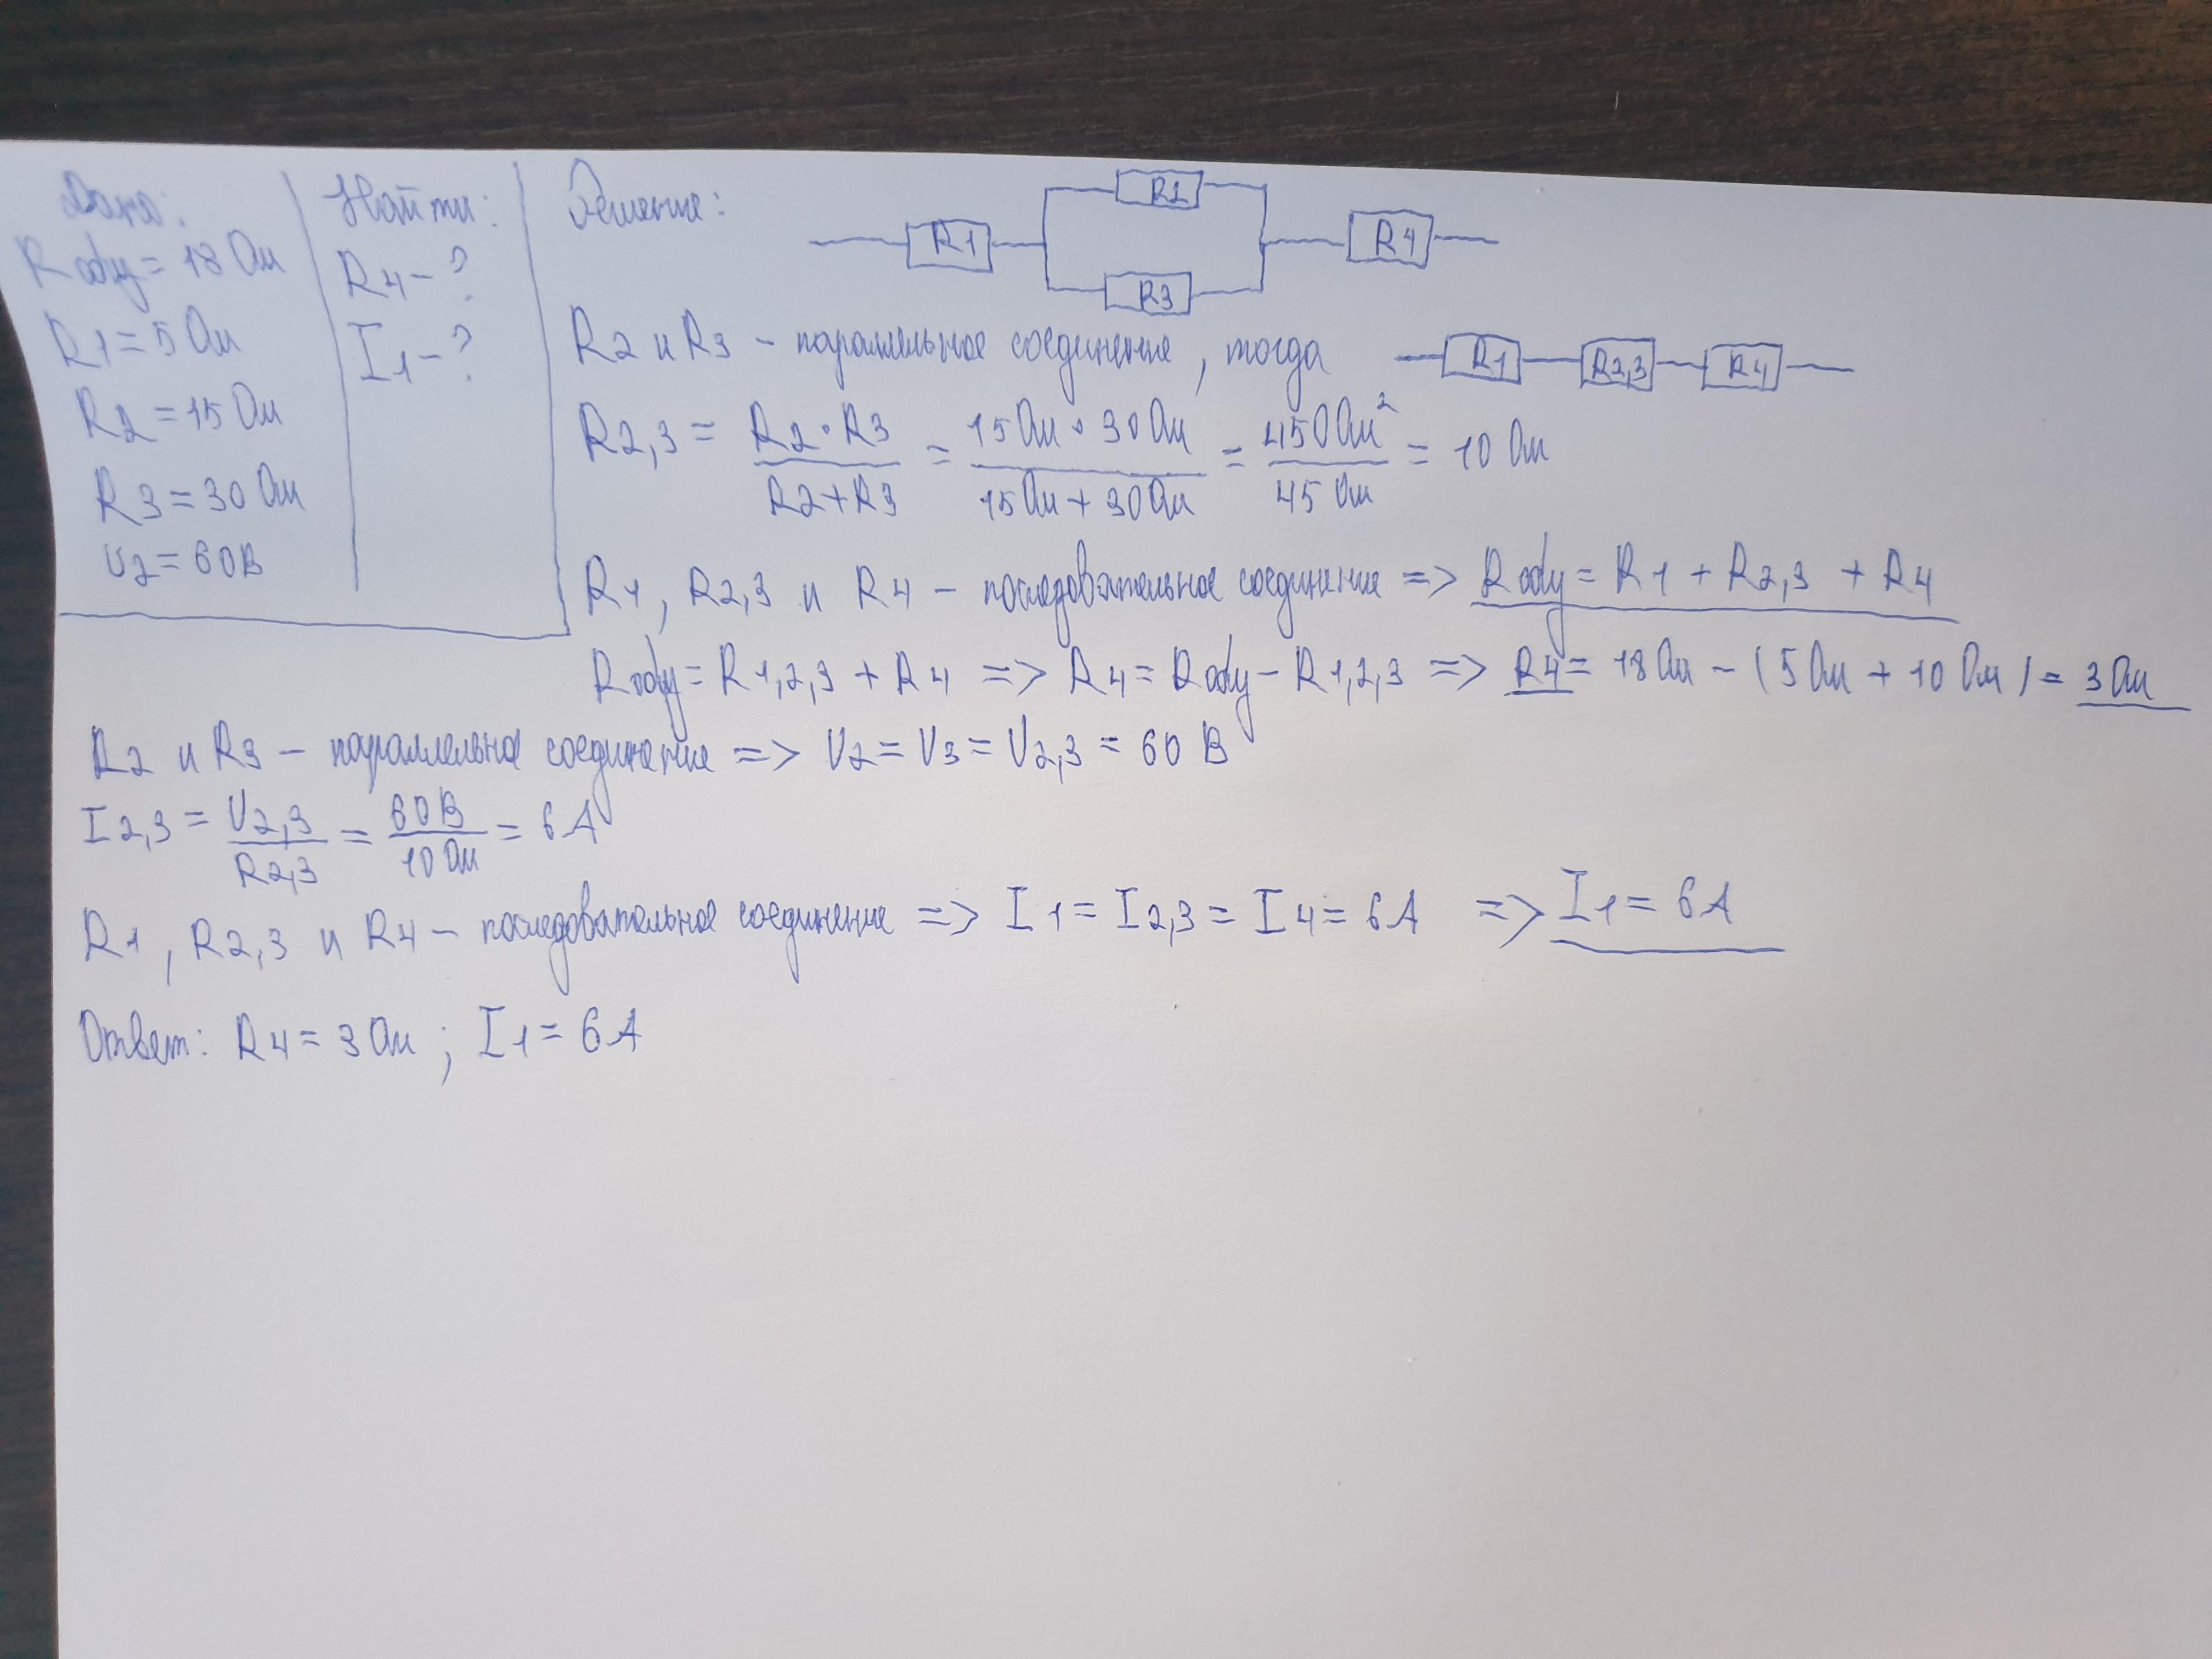 Дано:
Rобщ = 18 Ом
R1 = 5 Ом
R2 = 15 Ом
R3 = 30 Ом
U2 = 60В
Найти:
R4 - ?
I1 - ?
Решение:
R1
R2
R3
R4
R2 и R3 - параллельное соединение, тогда
R1 R2,3 R4
R2,3 = R2 · R3 / R2 + R3 = 15 Ом · 30 Ом / 15 Ом + 30 Ом = 450 Ом² / 45 Ом = 10 Ом
R1, R2,3 и R4 - последовательное соединение => Rобщ = R1 + R2,3 + R4
Rобщ = R1,2,3 + R4 => R4 = Rобщ - R1,2,3 => R4 = 18 Ом - (5 Ом + 10 Ом) = 3 Ом
R2 и R3 - параллельное соединение => U2 = U3 = U2,3 = 60 В
I2,3 = U2,3 / R2,3 = 60В / 10 Ом = 6 А
R1, R2,3 и R4 - последовательное соединение => I1 = I2,3 = I4 = 6А => I1 = 6А
Ответ: R4 = 3 Ом; I1 = 6 А